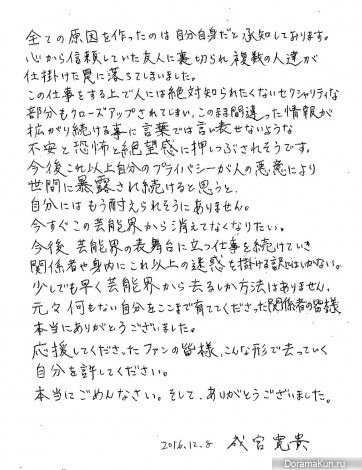 全ての原因を作ったのは自分自身だと承知しております。
心から信頼していた友人に裏切られ複数の人達が
仕掛けた罠に落ちてしまいました。
この仕事をする上で人には絶対知られたくないセクシャリティな
部分もクローズアップされてしまい、このまま間違った情報が
拡がり続ける事に言葉では言い表せないような
不安と恐怖と絶望感に押しつぶされそうです。
今後これ以上自分のプライバシーが人の悪意により
世間に暴露され続けると思うと、
自分にはもう耐えられそうにありません。
今すぐこの芸能界から消えてなくなりたい。
今後芸能界の表舞台に立つ仕事を続けていき
関係者や身内にこれ以上の迷惑を掛ける訳にはいかない。
少しでも早く芸能界から去るしか方法はありません。
元々何もない自分をここまで育ててくださった関係者の皆様
本当にありがとうございました。
応援してくださったファンの皆様、こんな形で去っていく
自分を許してください。
本当にごめんなさい。そして、ありがとうございました。
2016.12.8 成宮寛貴
DoramaKun.ru